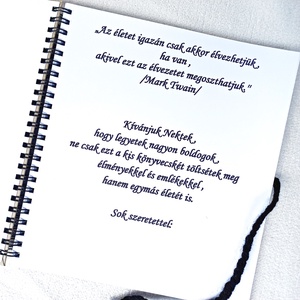 „Az életet igazán csak akkor élvezhetjük,
ha van ,
akivel ezt az élvezetet megoszthatjuk.“
/Mark Twain/
Kívánjuk Nektek,
hogy legyetek nagyon boldogok,
ne csak ezt a kis könyvecskét töltsétek meg
élményekkel és emlékekkel ,
hanem egymás életét is.
Sok szeretettel: